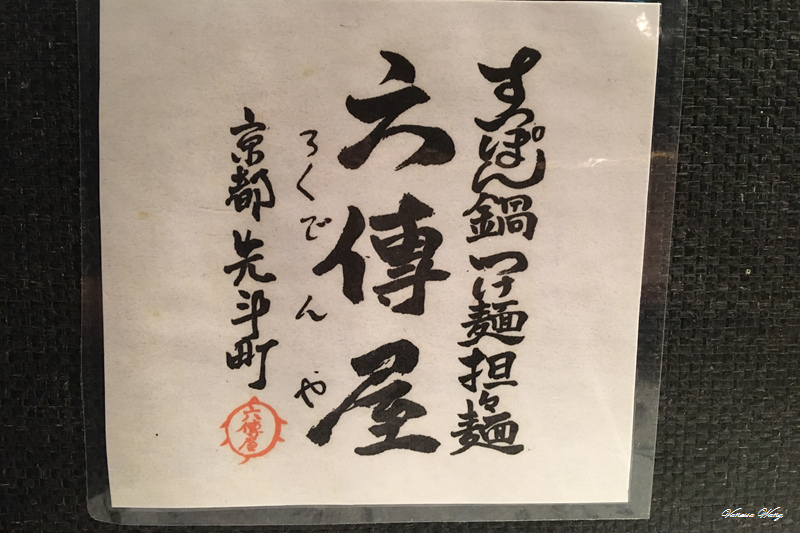 すっぽん鍋 つけ麺 担々麺
六傳屋
ろくでんや
京都 先斗町
六傳屋
Vanessa Wang